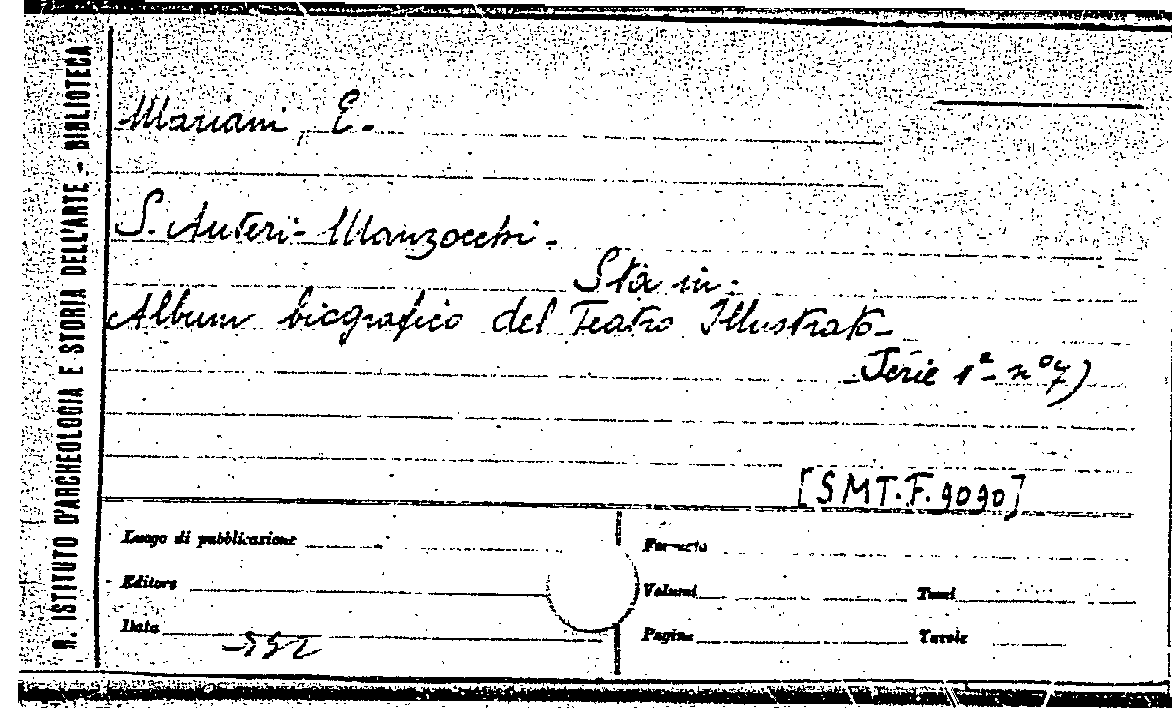 R. ISTITUTO D'ARCHEOLOGIA E STORIA DELL'ARTE - BIBLIOTECA
Mariani, E.
S. Auteri-Manzocchi.
Sta in:
Album biografico del Teatro Illustrato
Serie 1ª - nº 7)
[SMT.F.9090]
Luogo di pubblicazione
Formato
Editore
Volumi Tomi
Data
Pagine Tavole